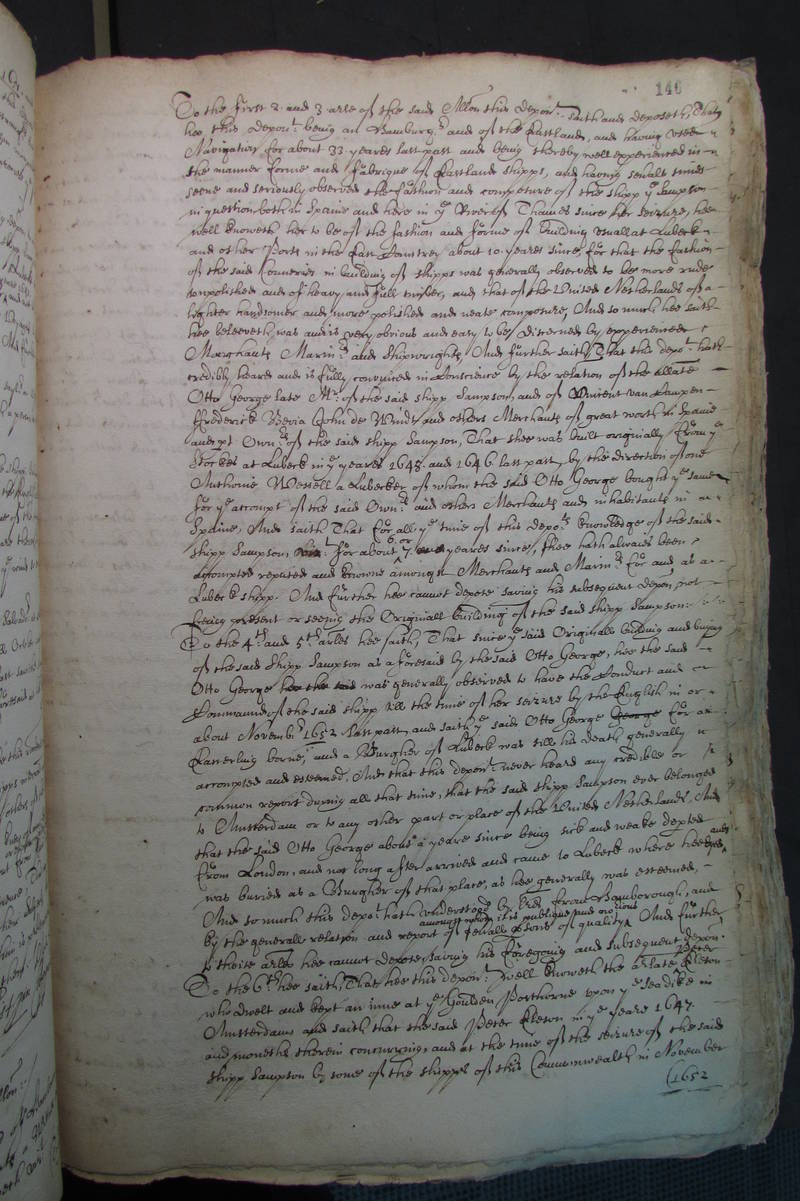 140
To the first 2. and 3. arles of the said Allon this depont. saith and deposeth, That
hee this depont. being an Hamburgr. and of the Eastland, and having used
Navigation for about 33. yeares last past and being thereby well experienced in
the manner forme and fabrique of Eastland shipps, and having severall times
seene and seriously observed the fashion and composure of the shipp ye Sampson
in question both in Spaine and here in ye River of Thames since her seizure, hee
well knoweth her to be of the fashion and forme of building usuall at Lubeck
and other Ports in the East Countrey about 10. yeares since, for that the fashion
of the said Countries in building of shipps was generally observed to be more rude
unpolished and of heavy and full timber, and that of the United Netherlands of a
lighter handsomer and more polished and neate composure, And so much hee saith
hee beleeveth was and is very obvious and easy to be discerned by experienced
Merchants Marinrs. and Shipwrights, And further saith, That this depont. hath
credibly heard and is fully convinced in Conscience by the relation of the allate
Otto George late Mr. of the said shipp Sampson, and of Vincent van Campen
Frederick Bevia John de Windt and others Merchants of great worth in Spaine
and pt Ownrs. of the said shipp Sampson, That shee was built originally from ye
Stockes at Lubeck in ye yeares 1645. and 1646. last past, by the direction of one
Anthonie Wessell a Lubecker, of whom the said Otto George bought ye same
for ye accompt of the said Ownrs. and others Merchants and inhabitants in
Spaine, And saith That for all ye time of this depots. knowledge of the said
shipp Sampson, for about 6. or 7. yeares since, shee hath alwaies been
accompted reputed and knowne amongst Merchants and Marinrs. for and as a
Lubeck shipp. And further hee cannot depose saving his subsequent depon, not
being present or seeing the Originall building of the said shipp Sampson.
To the 4th. and 5th. arles hee saith, That since ye said Originall building and buying
of the said shipp Sampson as aforesaid by the said Otto George, hee the said
Otto George hee the said was generally observed to have the Conduct and
Command of the said shipp till the time of her seizure by the English in or
about Novembr. 1652 last past, and saith ye said Otto George George for an
Easterling borne, and a Burgher of Lubeck was till his death generally
accompted and esteemed, And that this depont. never heard any credible or
common report during all that time, that the said shipp Sampson ever belonged
to Amsterdam or to any other part or place of the United Netherlands, And
that the said Otto George about a yeare since being sick and weake depted
from London, and not long after arrived and came to Lubeck where hee dyed, and
was buried as a Burgher of that place, as hee generally was esteemed,
And so much this depot. hath understood by from Hamborough, and
by the generall relation and report of severall psons of quality amongst whom it is publique and notorious And further
to theise arles hee cannot depose, saving his foregoing and subsequent depon.
To the 6th. hee saith, That hee this depont. well knoweth the arlate Peter Cleton
who dwelt and kept an inne at ye Goulden Posthorne upon ye seadike in
Amsterdam and saith that the said Peter Cleton in ye yeare 1647.
and moneths therein concurring, and at the time of the seizure of the said
shipp Sampson by some of the shipps of this Commonwealth in November
(1652